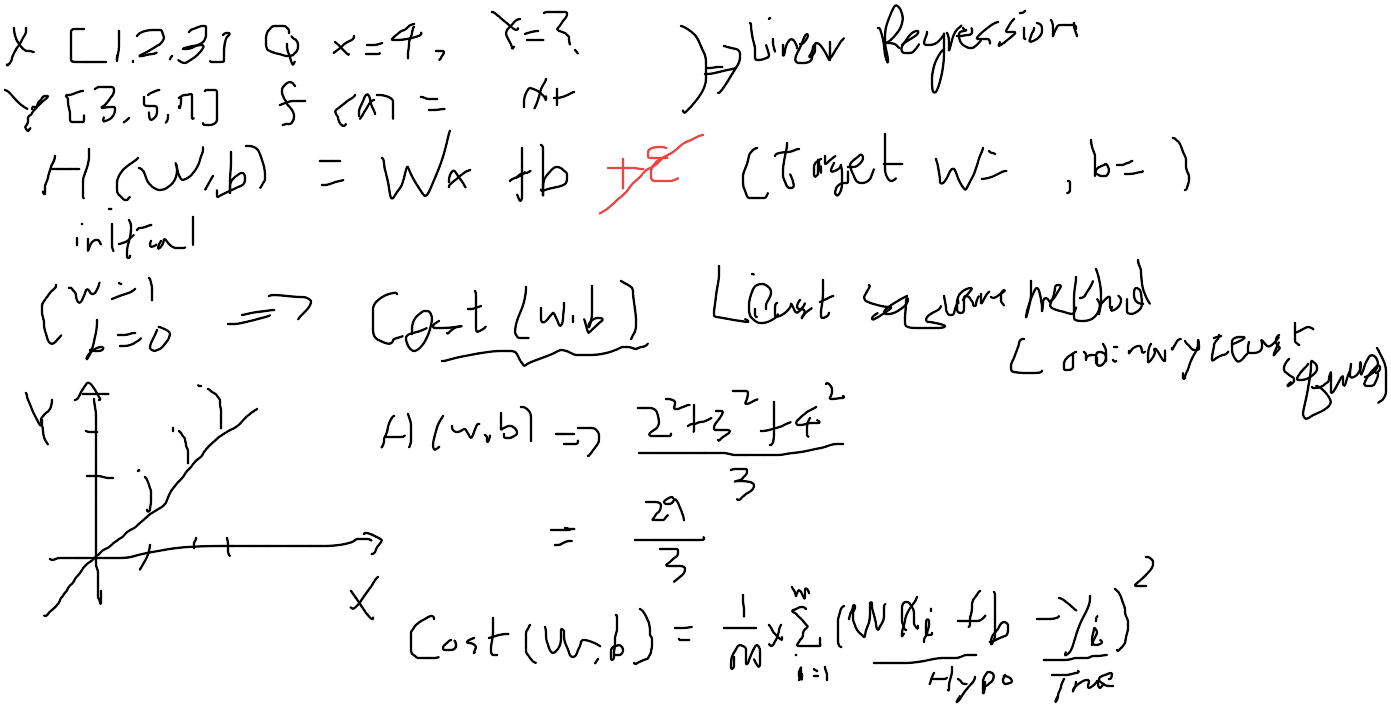 X [1.2.3] Q x=4, Y=?
Y [3.5.7] f(x) = x+
⇒ Linear Regression
H(W,b) = Wx +b +ε (target W= , b= )
initial
(w=1
b=0 ⇒ Cost (w,b) Least square method
(ordinary least squares)
Y
H(w,b) ⇒ 2²+3²+4² / 3
= 29/3
X
Cost(W,b) = 1/m × Σ i=1 m (W xi + b - yi)²
Hypo True